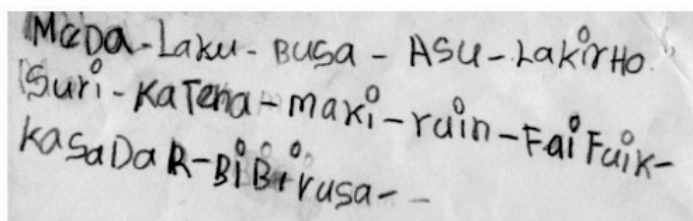 MeDa-Laku-Busa-ASu-LakirHo
Suri-KaTena-maxi-ruin-FaiFuik-
KaSaDaR-BiBirusa--